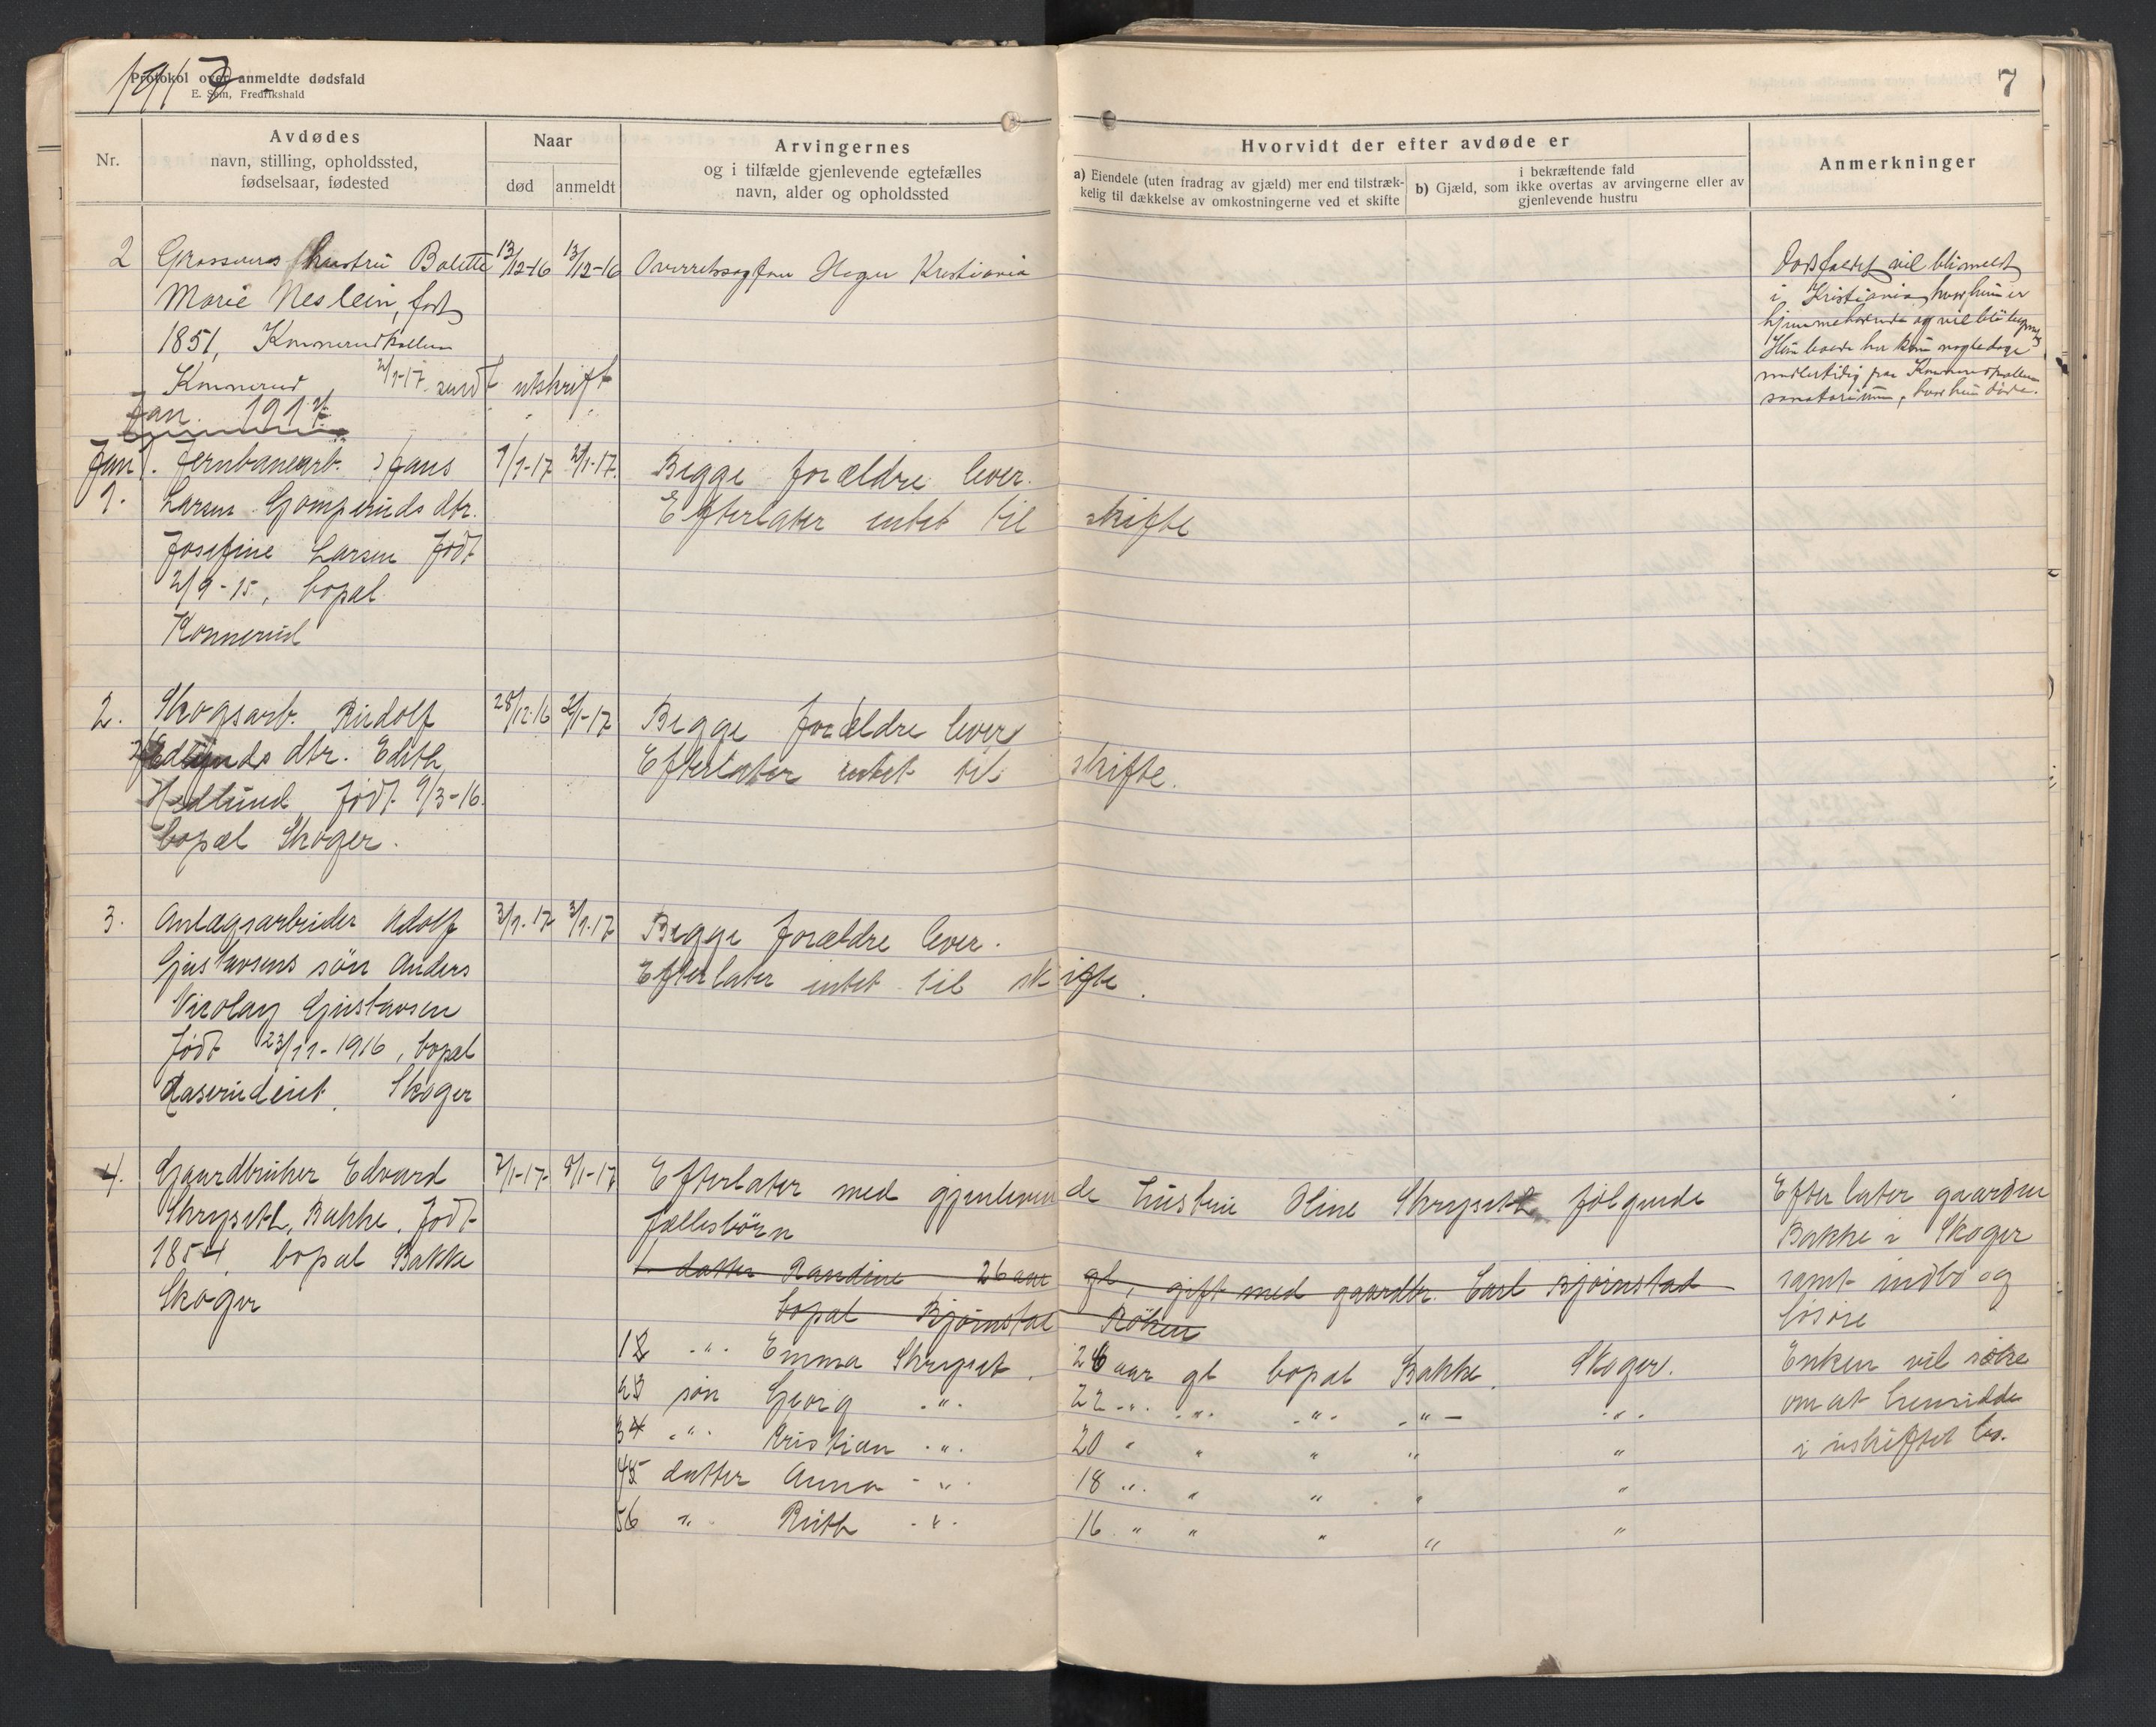 1917
Protokol over anmeldte dødsfald
E. Sem, Fredrikshald
7
Nr.
Avdødes
navn, stilling, opholdssted,
fødselsaar, fødested
Naar
død
anmeldt
Arvingernes
og i tilfælde gjenlevende egtefælles
navn, alder og opholdssted
Hvorvidt der efter avdøde er
a) Eiendele (uten fradrag av gjæld) mer end tilstræk-
kelig til dækkelse av omkostningerne ved et skifte
i bekræftende fald
b) Gjæld, som ikke overtas av arvingerne eller av
gjenlevende hustru
Anmerkninger
2 Grosserers hustru Bolette 13/12-16 13/12-16 Overretssagfører Kristiania
Marie Neslein, født
1851, Konnerudkollen
Konnerud 2/1-17 sendt utskrift
Dødsfaldet vil bli meldt
i Kristiania, hvor hun er
hjemmehørende og vil bli
Hun boede her kun nogle dage
midlertidig paa Konnerudkollen
sanatorium, hvor hun døde.
Jan. 1917
Jan. Jernbanearb. Hans 1/1-17 2/1-17. Begge forældre lever.
1. Larsen Gomperuds dtr. Efterlater intet til skifte
Josefine Larsen født
2/9-15, bopæl
Konnerud
2. Skogsarb. Rudolf 28/12-16 2/1-17 Begge forældre lever
Hedlunds dtr. Edith Efterlater intet til skifte.
Hedlund født 9/3-16.
bopæl Skoger.
3. Anlægsarbeider Adolf 3/1-17 3/1-17 Begge forældre lever.
Gustavsens søn Anders Efterlater intet til skifte.
Nicolay Gustavsen
født 23/11-1916, bopæl
Skoger
4. Gaardbruker Edvard 7/1-17 8/1-17 Efterlater med gjenlevende hustru Oline Skrypset følgende
Skrypset, Bakke, født fællesbörn
1854, bopæl Bakke
Skoger
1. datter Randine 26 aar gl, gift med gaardbr. Carl Bjørnstad
bopæl Bjørnstad Røken
12 " Emma Skrypset, 26 aar gl bopæl Bakke, Skoger.
23 søn Georg " 22 " " " " "
34 " Kristian " 20 " " " " "
45 datter Anna " 18 " " " " "
56 " Ruth " 16 " " " " "
Efterlater gaarden
Bakke i Skoger
samt indbo og
løsøre
Enken vil søke
om at hensidde
i uskiftet bo.